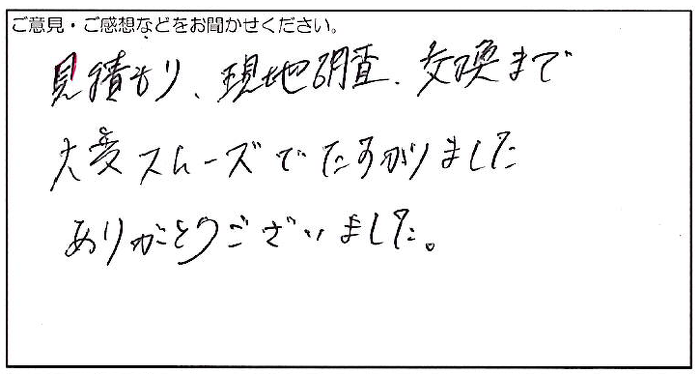 ご意見・ご感想などをお聞かせください。
見積もり、現地調査、交換まで
大変スムーズでたすかりました
ありがとうございました。